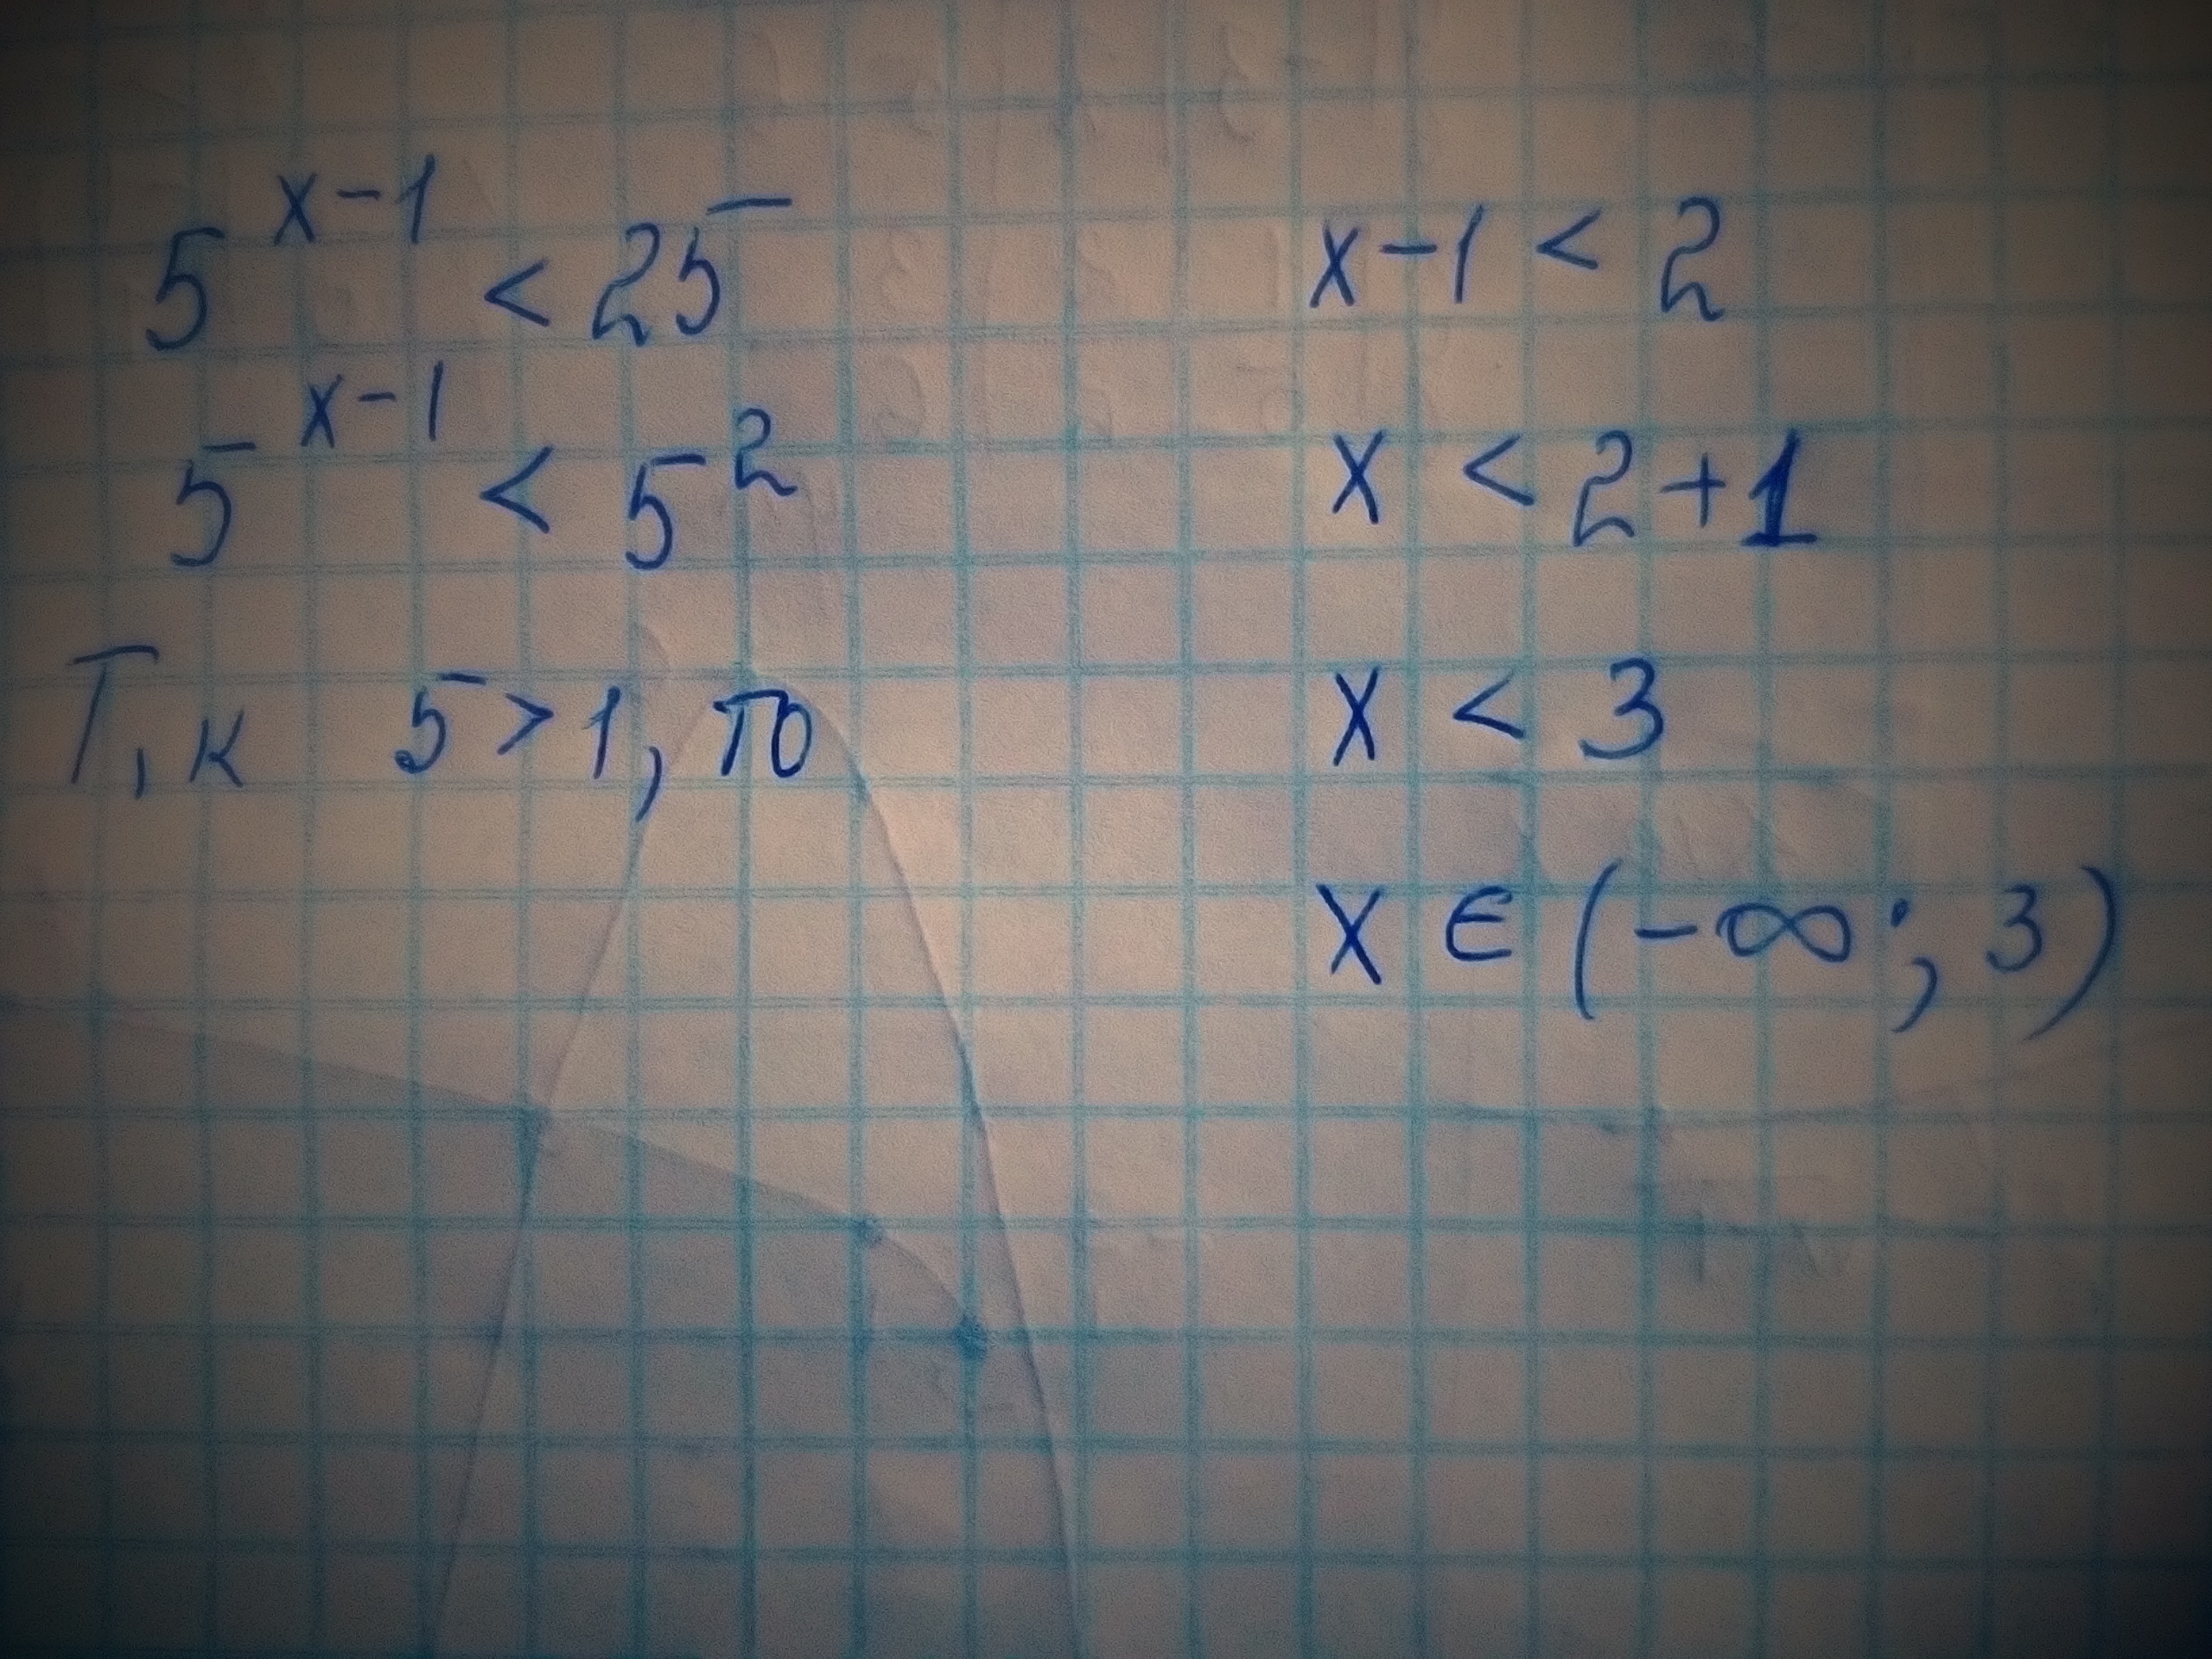 5^{x-1} < 25
5^{x-1} < 5^2
Т,к 5 > 1, то
x-1 < 2
x < 2+1
x < 3
x ∈ (-∞; 3)